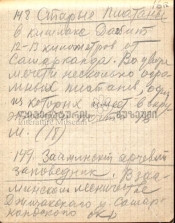 148 Старые платаны
в кишлаке Дагбит
12-13 километров от
Самарканда. Во дворе
мечети несколько огро
мных платанов, од
из которых имеет в окру
м. (18)
149. Зааминский арчевый
заповедник. В Заа
минском лесничестве
Джизакского р. Самар
кандского